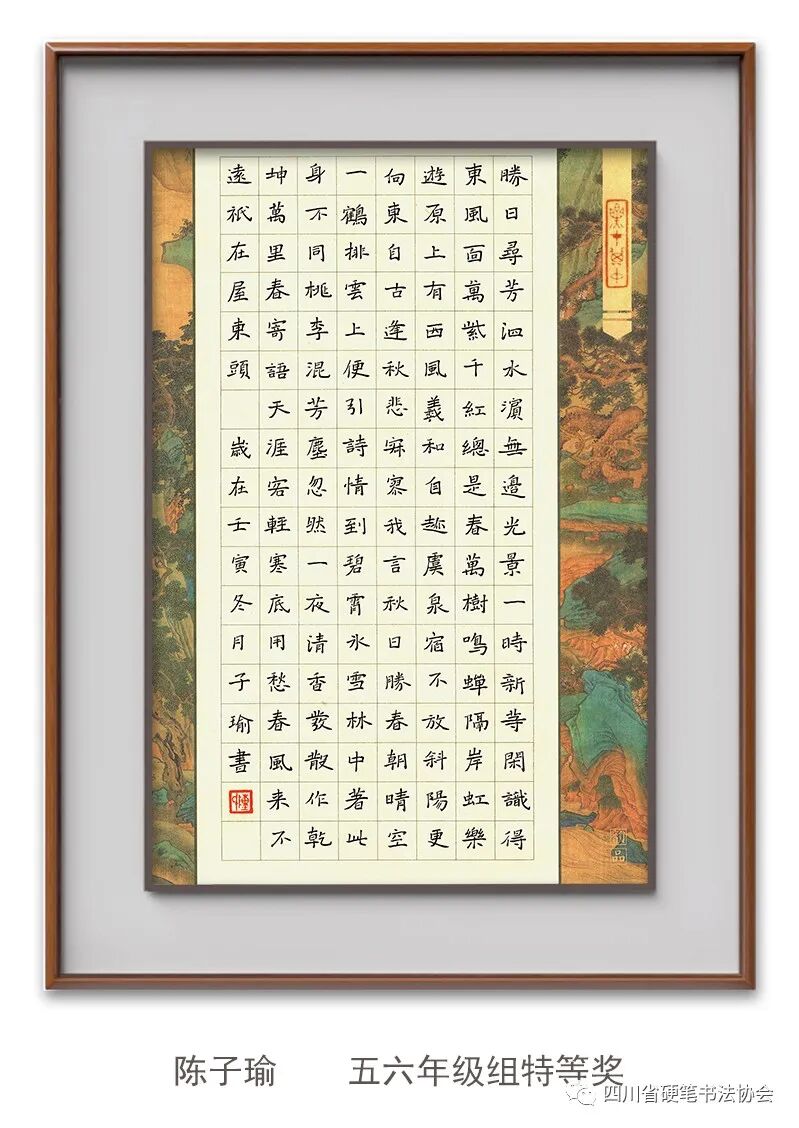 勝日尋芳泗水濱無邊光景一時新等閑識得
東風面萬紫千紅總是春萬樹鳴蟬隔岸虹樂
遊原上有西風羲和自趂虞泉宿不放斜陽更
向東自古逢秋悲寂寥我言秋日勝春朝晴空
一鶴排雲上便引詩情到碧霄冰雪林中著此
身不同桃李混芳塵忽然一夜清香發散作乾
坤萬里春寄語天涯客輕寒底用愁春風来不
遠祇在屋東頭 歲在壬寅冬月子瑜書
陈子瑜 五六年级组特等奖
四川省硬笔书法协会